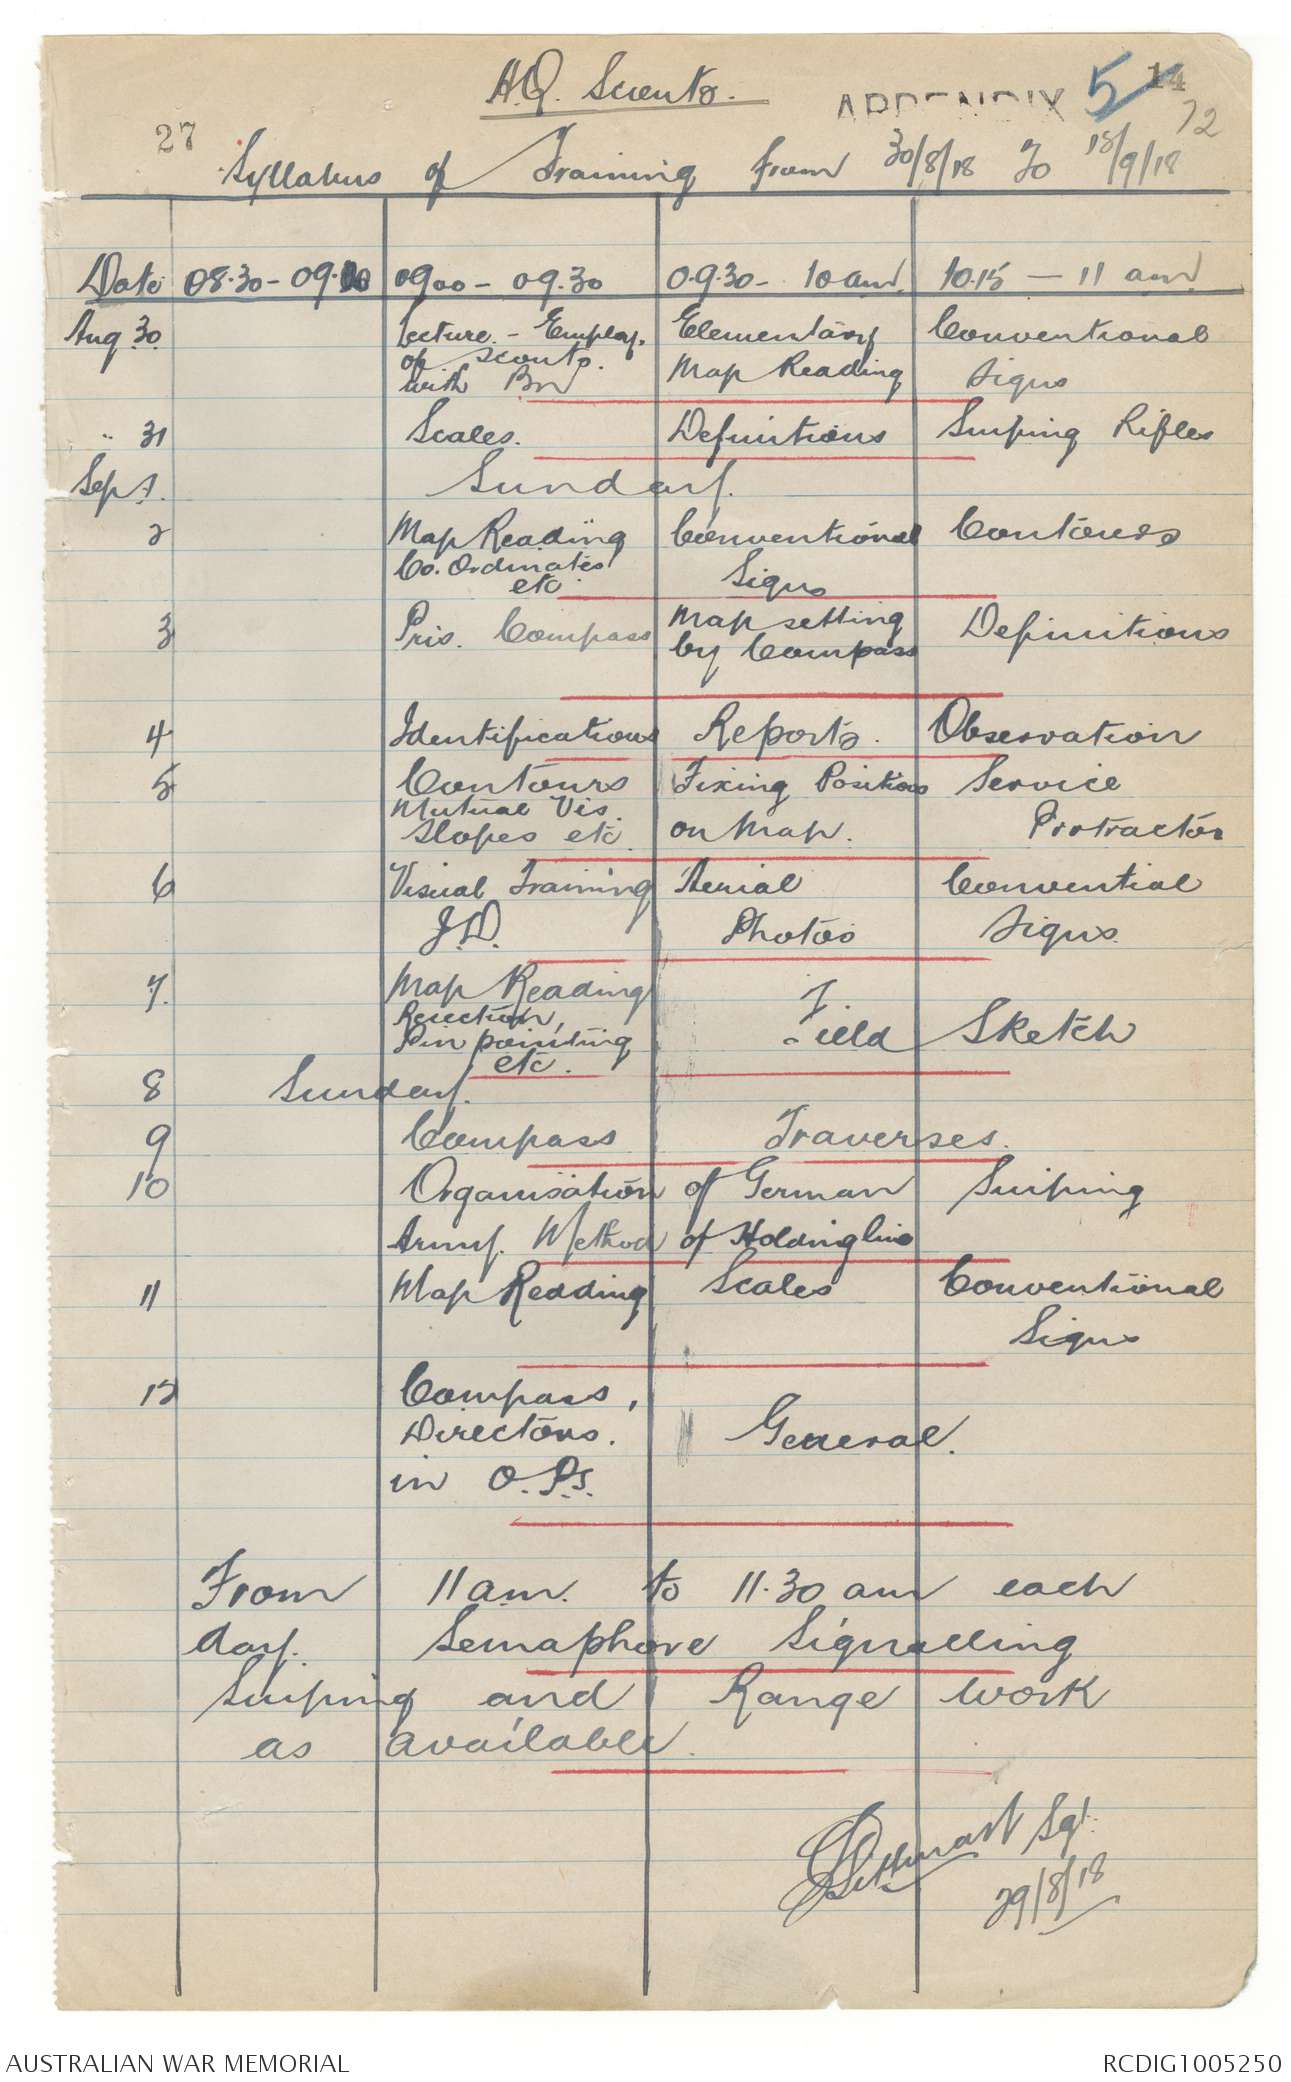 H.Q. Scouts.
APPENDIX 5 14
12
27
Syllabus of Training from 30/8/18 To 18/9/18
Date 08.30 - 09.00 0900 - 09.30 09.30 - 10 am. 10.15 - 11 am
Aug 30 Lecture - Employ. Elementary Conventional
of Scouts. Map Reading Signs
with Bn
" 31 Scales. Definitions Sniping Rifles
Sep 1. Sunday.
2 Map Reading Conventional Contours
Co. Ordinates Signs
etc
3 Pris. Compass Map setting Definitions
by Compass
4 Identifications Reports. Observation
5 Contours Fixing Positions Service
Mutual Vis. on Map. Protractor
Slopes etc.
6 Visual Training Aerial Convential
J.D. Photos Signs.
7. Map Reading Field Sketch
Resection,
Pin pointing
etc.
8 Sunday.
9 Compass Traverses.
10 Organisation of German Sniping
Army. Method of Holding line
11 Map Reading Scales Conventional
Signs
12 Compass, General.
Directors.
in O.Ps.
From 11 am. to 11.30 am each
day. Semaphore Signalling
Sniping and Range work
as available.
Sgt.
29/8/18
AUSTRALIAN WAR MEMORIAL RCDIG1005250